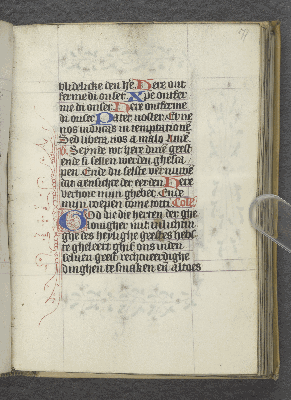 blidelicke den he. Here ont
ferme di onser Xpe ontfer
me di onser Here ontferme
di onser Pater noster. Et ne
nos inducas in temptatione
Sed libera nos a malo Ame.
Seynde wt here dine geest
ende si sellen werden ghesca
pen. Ende du selste vernuwe
dat aenschie der eerden Here
verhoir mijn ghebet. Ende
mijn roepen come totti Coll'
God die die herten der ghe
louigher mit verluchtin
ghe des heylighe geestes hebs
te gheleert ghif ons inden
seluen geest rechtuerdighe
dinghen te smaken en altoes